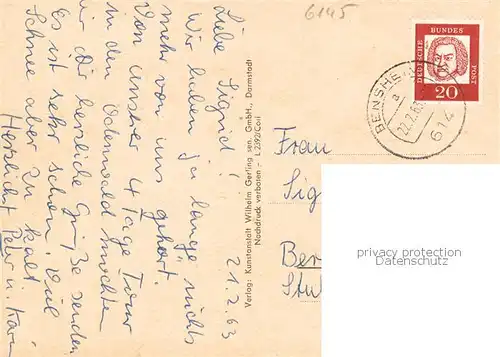 6145
DEUTSCHE BUNDES POST
20
BENSHE
a
22.2.63
614
21.2.63
Liebe Sigrid!
Wir haben ja lange nichts
mehr von uns gehört.
Von unserer 4 Tage Tour
in den Odenwald möchten
wir Dir herzliche Grüße senden
Es ist sehr schön. Viel
Schnee aber zu kalt.
Herzlichst Peter u.
Verlag: Kunstanstalt Wilhelm Gerling sen. GmbH., Darmstadt
Nachdruck verboten - L 2392/Cosi
Frau
Sig
Ber
privacy protection
Datenschutz